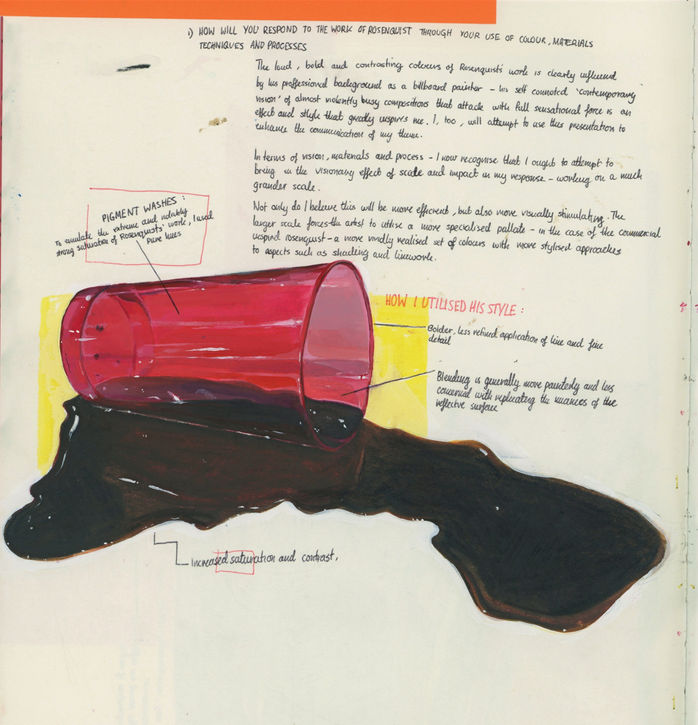 1) HOW WILL YOU RESPOND TO THE WORK OF ROSENQUIST THROUGH YOUR USE OF COLOUR, MATERIALS
TECHNIQUES AND PROCESSES
The loud, bold and contrasting colours of Rosenquists work is clearly influenced
by his proffessional background as a billboard painter - his self connoted 'contemporary
vision' of almost violently busy compositions that attack with full sensational force is an
effect and style that greatly inspires me. I, too, will attempt to use this presentation to
enhance the communication of my theme.
In terms of vision, materials and process - I now recognise that I ought to attempt to
bring in the visionary effect of scale and impact in my response - working on a much
grander scale.
Not only do I believe this will be more efficient, but also more visually stimulating. The
larger scale forces the artist to utilise a more specialised pallate - in the case of the commercial
inspired rosenquist - a more vividly realised set of colours with more stylised approaches
to aspects such as shading and linework.
PIGMENT WASHES:
To emulate the extreme and notably
strong saturation of Rosenquists' work, I used
Pure hues
HOW I UTILISED HIS STYLE:
Bolder, less refined application of line and fine
detail
Blending is generally more painterly and less
concerned with replicating the nuances of the
reflective surface
Increased saturation and contrast.